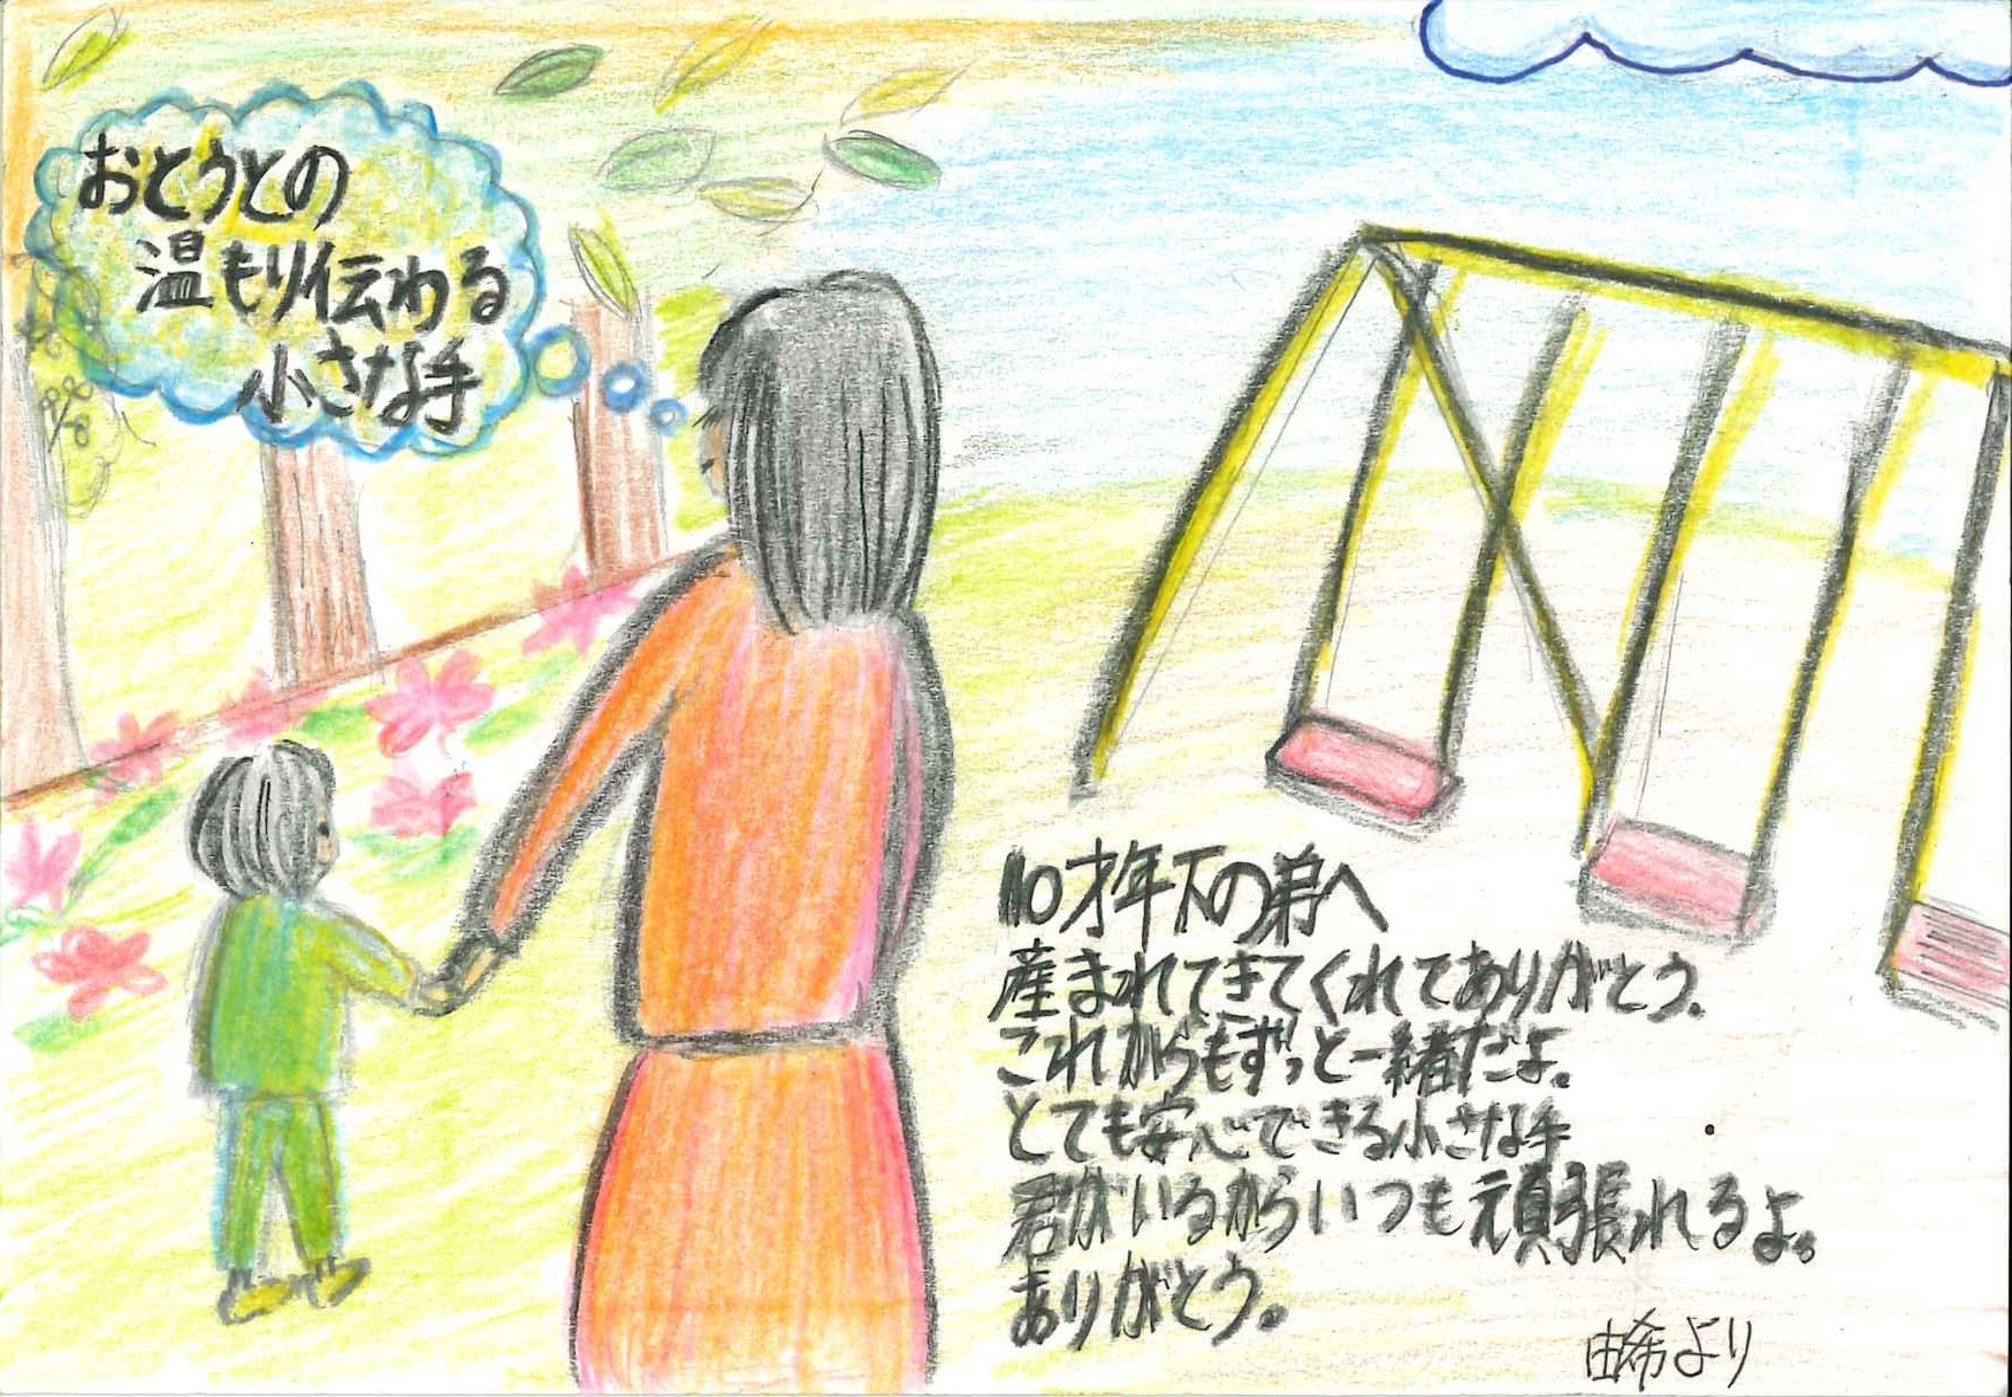 おとうとの
温もり伝わる
小さな手
10才年下の弟へ
産まれてきてくれてありがとう。
これからもずっと一緒だよ。
とても安心できる小さな手
君がいるからいつも頑張れるよ。
ありがとう。
由希より